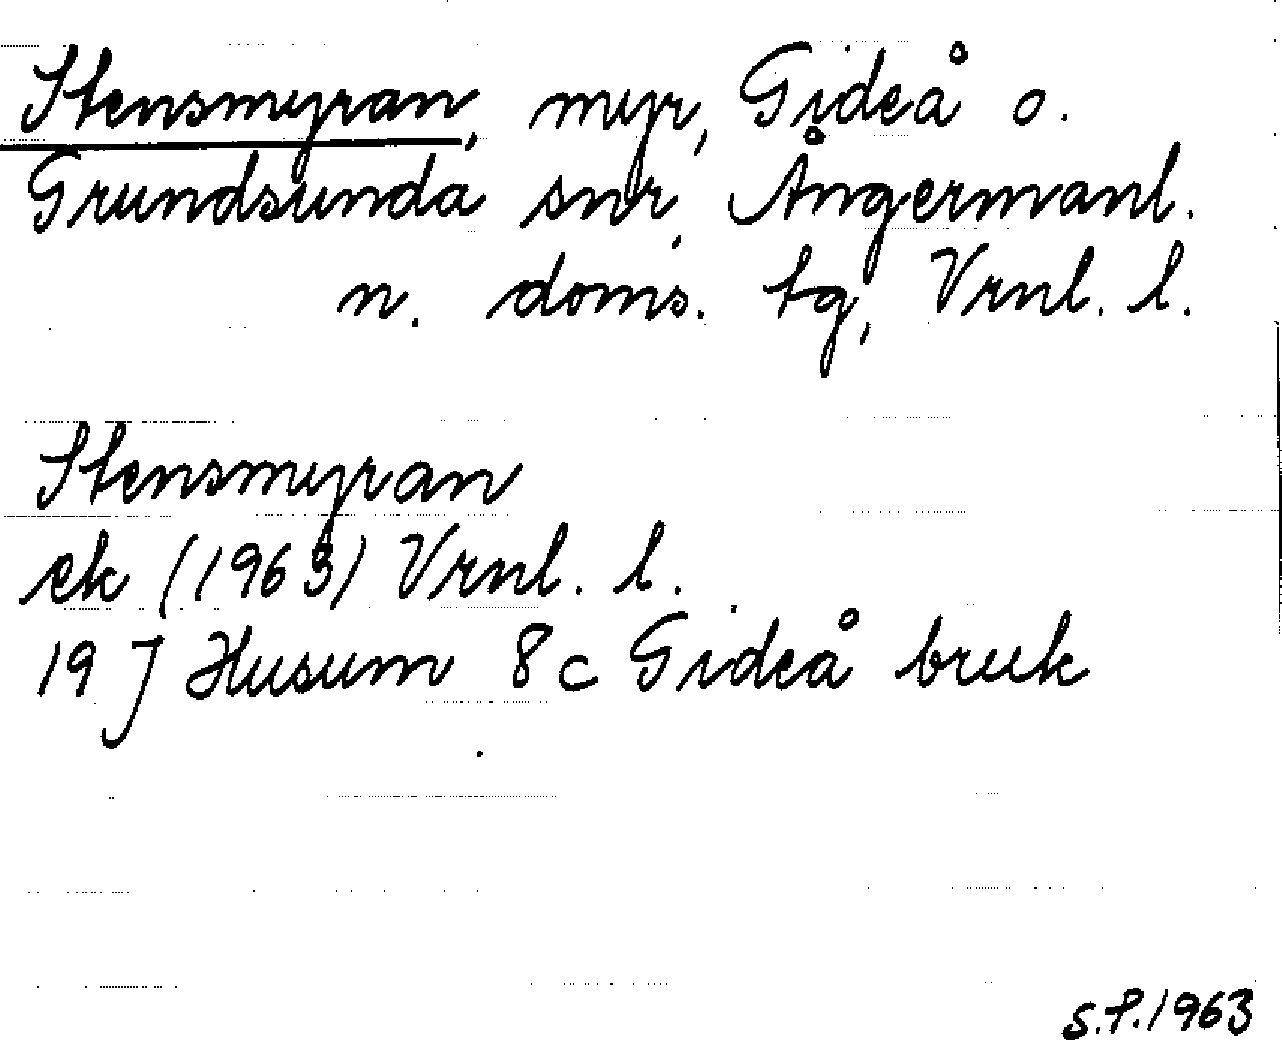 Stensmyran, myr, Gideå o.
Grundsunda snr, Ångermanl.
n. doms. tg, Vrnl. l.
Stensmyran
ek (1963) Vrnl. l.
19 J Husum 8 c Gideå bruk
S.P. 1963